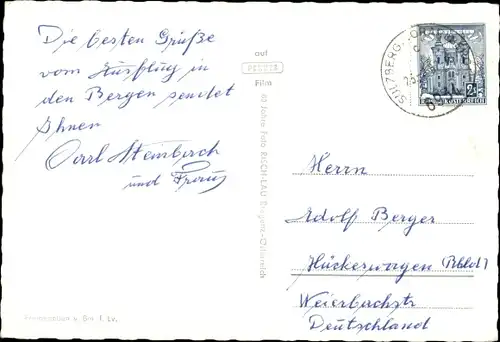 Die besten Grüße
vom Ausflug in
den Bergen sendet
Ihnen
Carl Steinbach
und Frau
auf
PERUTZ
Film
60 Jahre Foto RISCH-LAU Bregenz-Österreich
SULZBERG
REPUBLIK ÖSTERREICH
Herrn
Adolf Berger
Hückeswagen (Rhld)
Weierbachstr
Deutschland